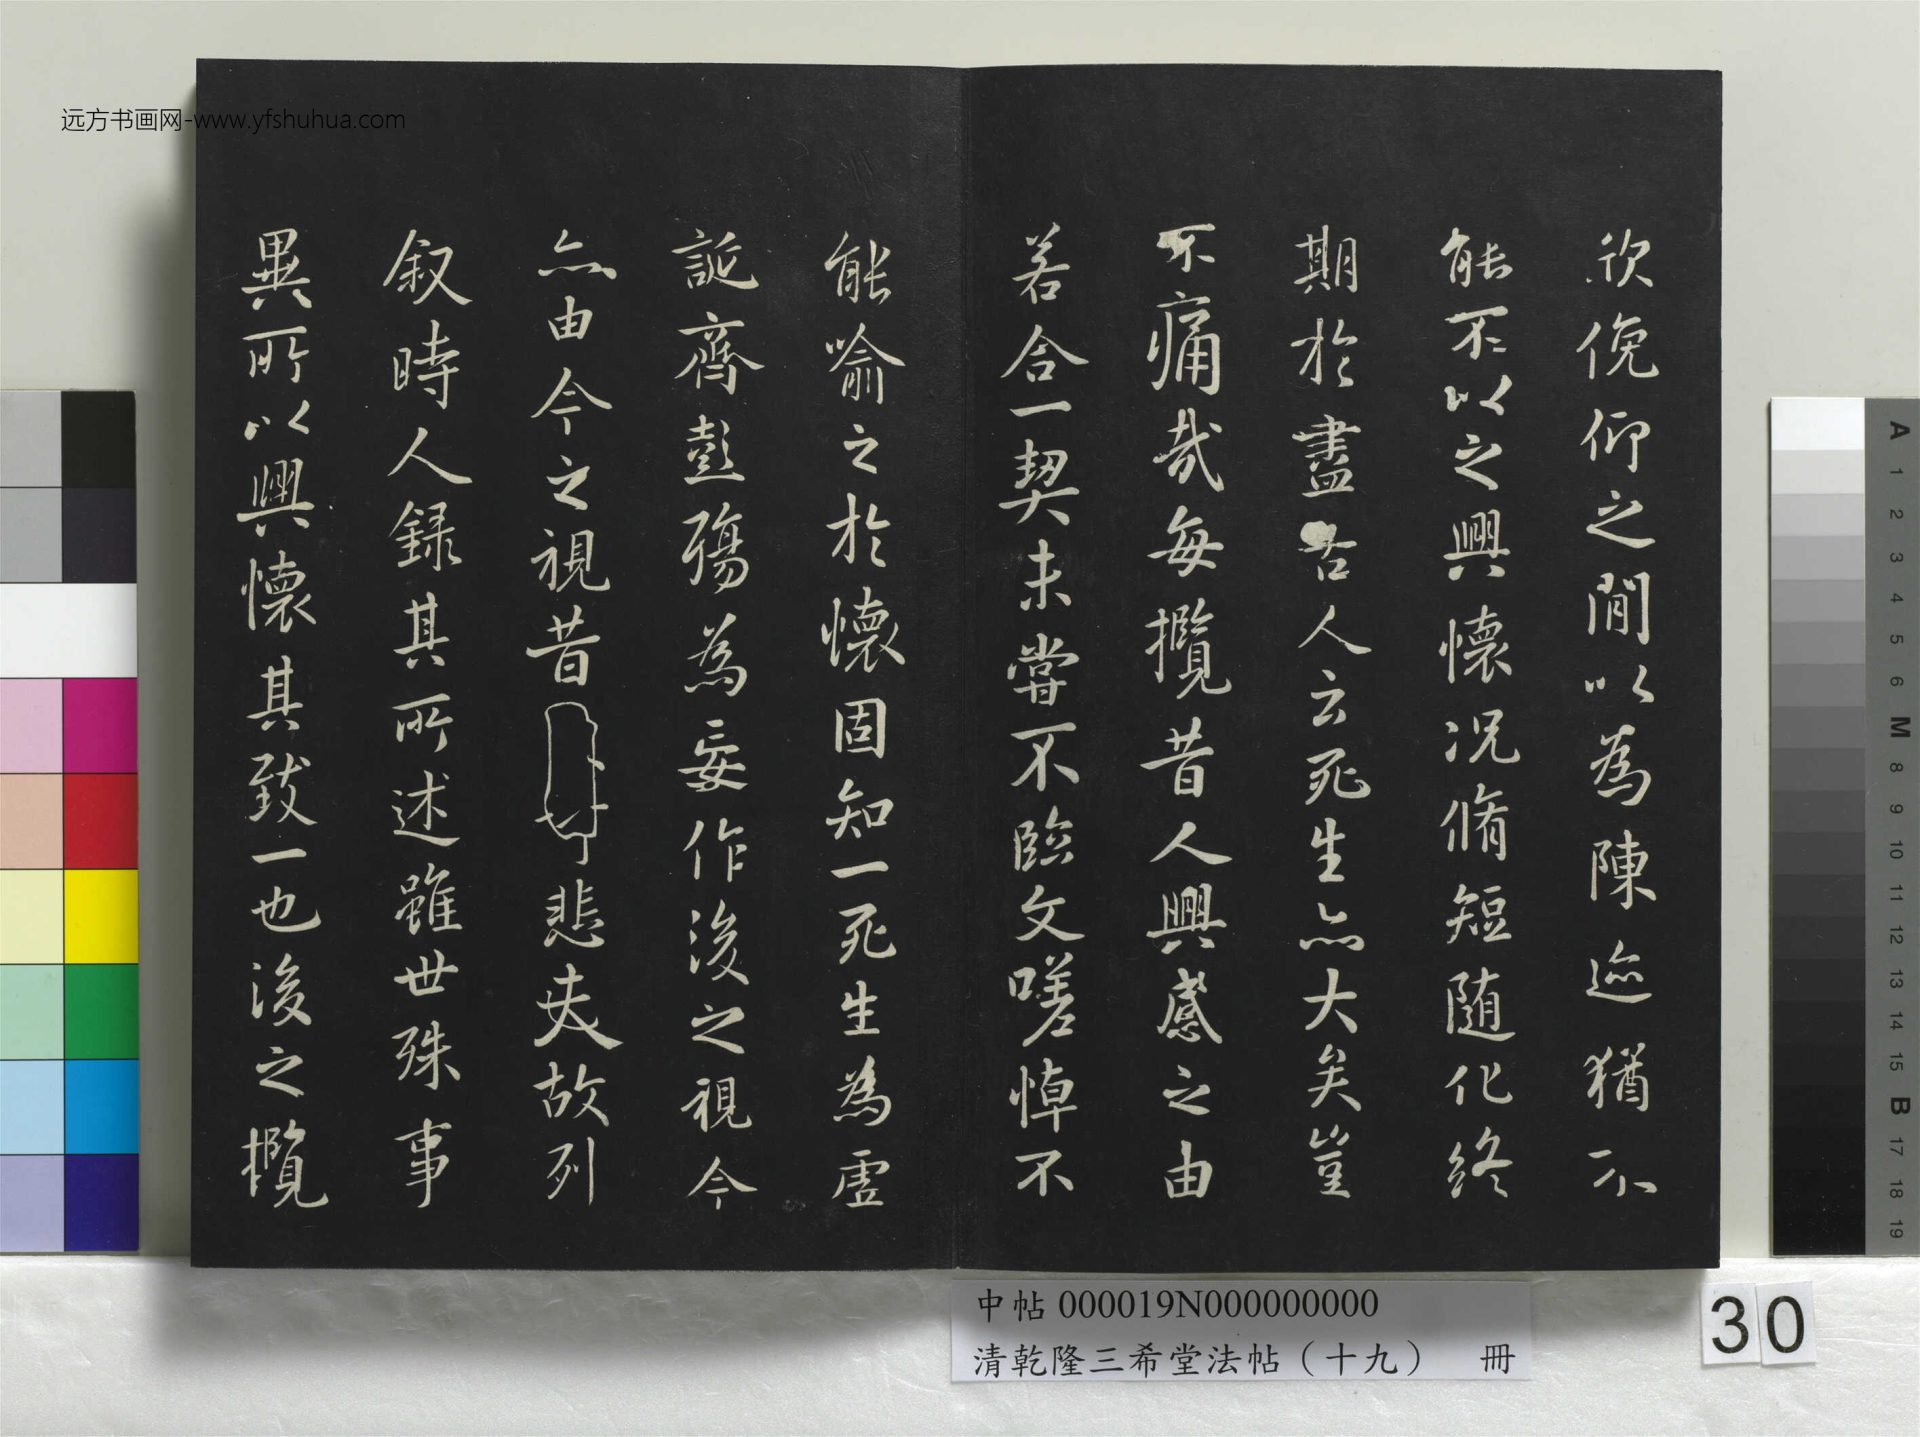 欣俛仰之閒以為陳迹猶不
能不以之興懷况脩短随化終
期於盡古人云死生亦大矣豈
不痛哉每攬昔人興感之由
若合一契未甞不臨文嗟悼不
能喻之於懷固知一死生為虛
誕齊彭殤為妄作後之視今
亦由今之視昔悲夫故列
叙時人錄其所述雖世殊事
異所以興懷其致一也後之攬
远方书画网-www.yfshuhua.com
中帖 000019N000000000
清乾隆三希堂法帖（十九） 冊
30
A
1
2
3
4
5
6
M
8
9
10
11
12
13
14
15
B
17
18
19